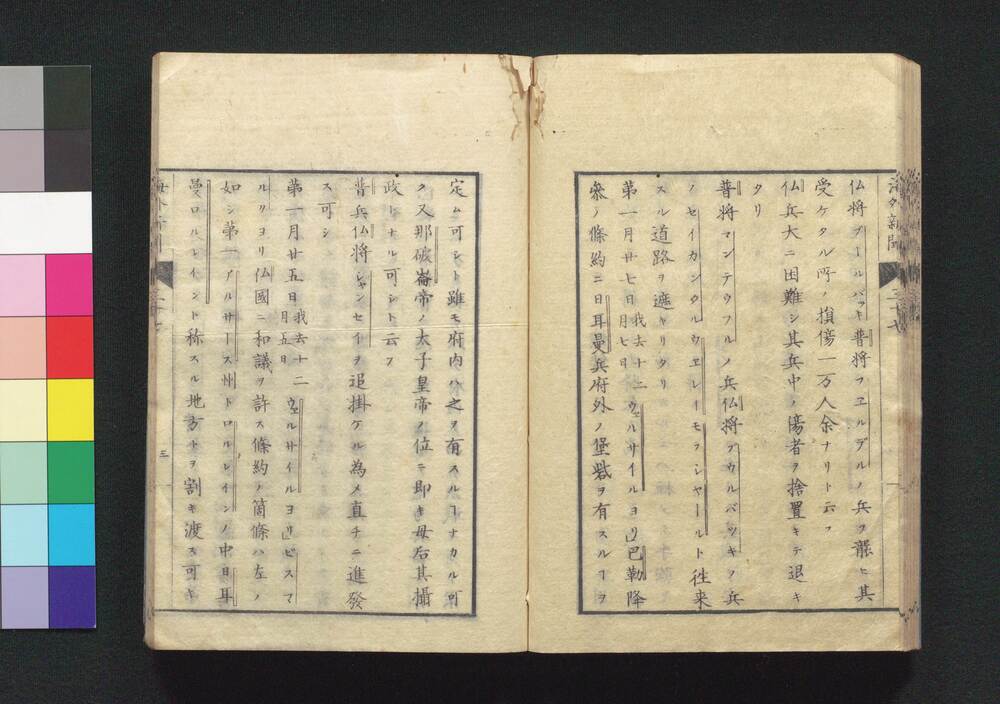 海外新聞 二十七
仏将ブールバツキ普将フヱルデルノ兵ヲ襲ヒ其
受ケタル所ノ損傷一万人余ナリト云フ
仏兵大ニ困難シ其兵中ノ傷者ヲ捨置キテ退キ
タリ
普将マンテウフルノ兵仏将ブウルバツキノ兵
ノセイカンタルウヱレイモヲシヤールト往来
スル道路ヲ遮キリタリ
第一月廿七日我去十二月七日ウェルサイルヨリ」巴勒降
参ノ條約ニ日耳曼兵府外ノ堡砦ヲ有スルヿヲ
定ム可シト雖モ府内ハ之ヲ有スルヿナカル可
ク又那破崙帝ノ太子皇帝ノ位ニ即キ母后其攝
政トナル可シト云フ
普兵仏将シャンセイヲ追掛ケル為メ直チニ進發
ス可シ
第一月廿五日我去十二月五日ウェルサイルヨリ」ビスマ
ルリヨリ仏國ニ和議ヲ許ス條約ノ箇條ハ左ノ
如シ第一アルサース州トロルレインノ中日耳
曼ロルレインント称スル地方トヲ割キ渡ス可キ
三